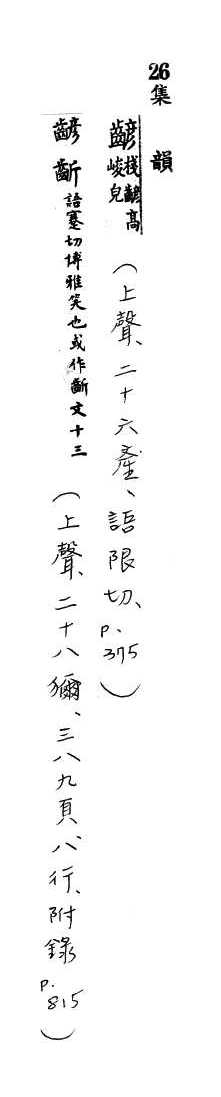 26集韻
齴棧齴高峻皃（上聲、二十六產、語限切、p.375）
齴齗語蹇切博雅笑也或作齗文十三（上聲、二十八獼、三八九頁、八行、附錄p.815）